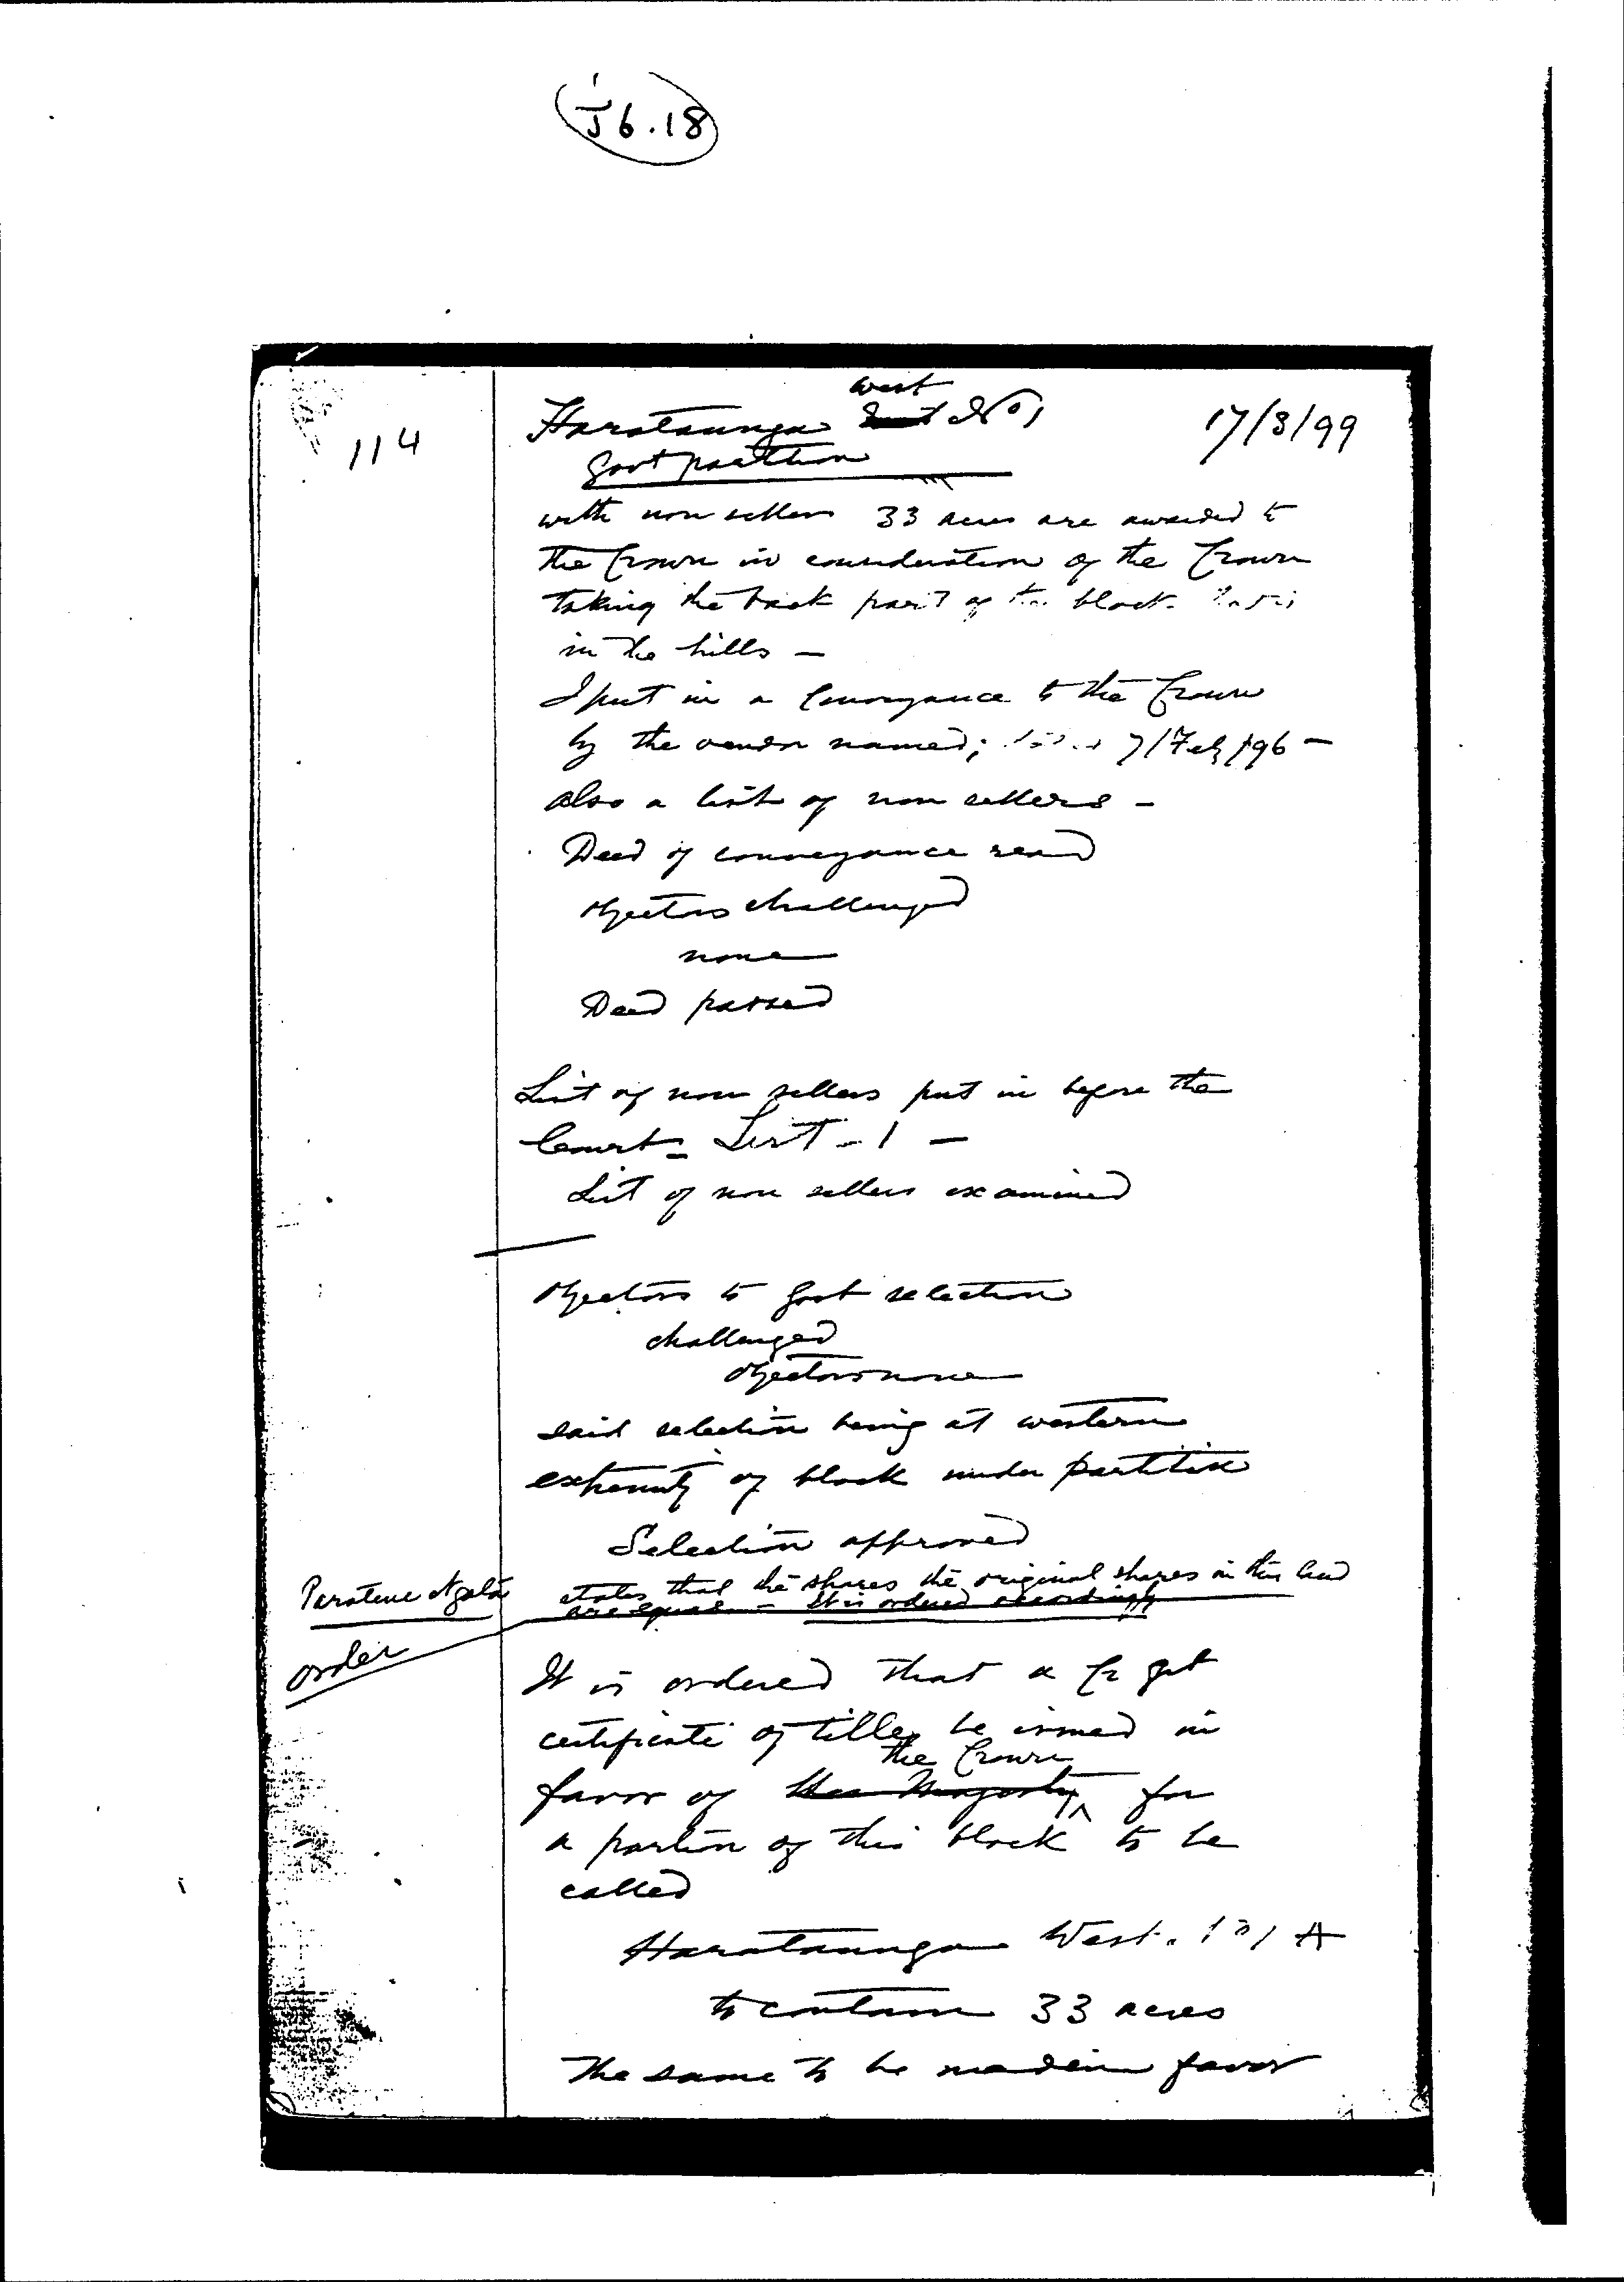 J6.18
114
Harataunga West No 1 17/3/99
Govt partition
with non sellers 33 acres are awarded to
the Crown in consideration of the Crown
taking the back part of the block
in the hills —
I put in a Conveyance to the Crown
by the vendor named; 7/Feb/96 —
also a list of non sellers —
Deed of conveyance read
Objectors challenged
none
Deed passed
List of non sellers put in before the
Court = List - 1 —
List of non sellers examined
Objectors to Govt selection
challenged
Objectors none
said selection being at western
extremity of block under partition
Selection approved
Paratene states that the shares the original shares in this land
are equal — It is ordered accordingly
Order
It is ordered that a
certificate of title be issued in
the Crown
favor of Her Majesty for
a portion of this block to be
called
Harataunga West. A
to contain 33 acres
The same to be made in favor